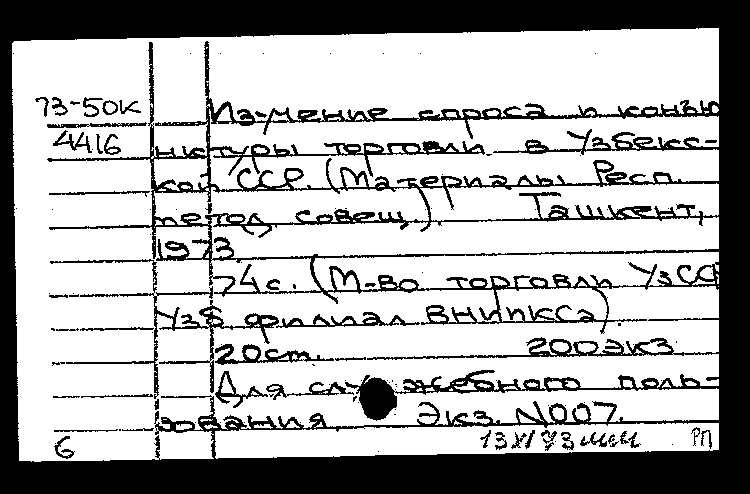 73-50К Изучение спроса и конъю
4416 нктуры торговли в Узбекс-
кой ССР. (Материалы Респ.
метод. совещ.). Ташкент,
1973.
74 с. (М-во торговли УзССР
Узб. филиал ВНИИКСа).
20 см. 200 экз
Для служебного поль-
зования. Экз. N007.
6 13 XI 73 РП